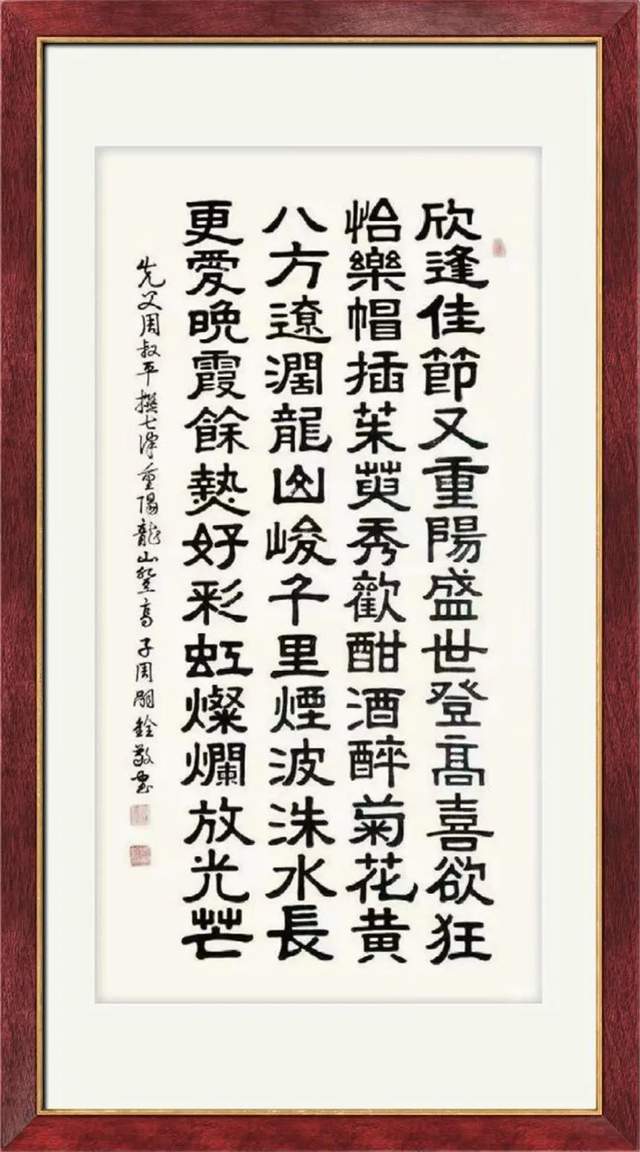 欣逢佳節又重陽盛世登高喜欲狂
怡樂帽插茱萸秀歡酣酒醉菊花黄
八方遼濶龍山峻千里煙波洙水長
更愛晚霞餘熱好彩虹燦爛放光芒
先父周叔平撰七律重陽龍山登高子周嗣銓敬書